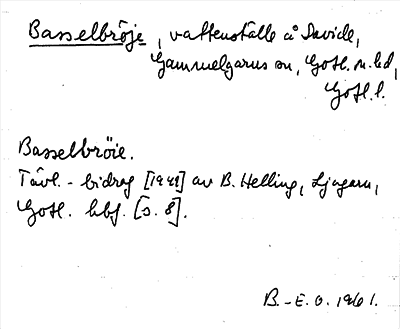 Basselbröje, vattenställe å Davide,
Gammelgarns sn, Gotl. n. hd,
Gotl. l.
Basselbröie.
Tävl.-bidrag [1941] av B. Helling, Ljugarn,
Gotl. hbf. [s. 8].
B.-E. O. 1961.